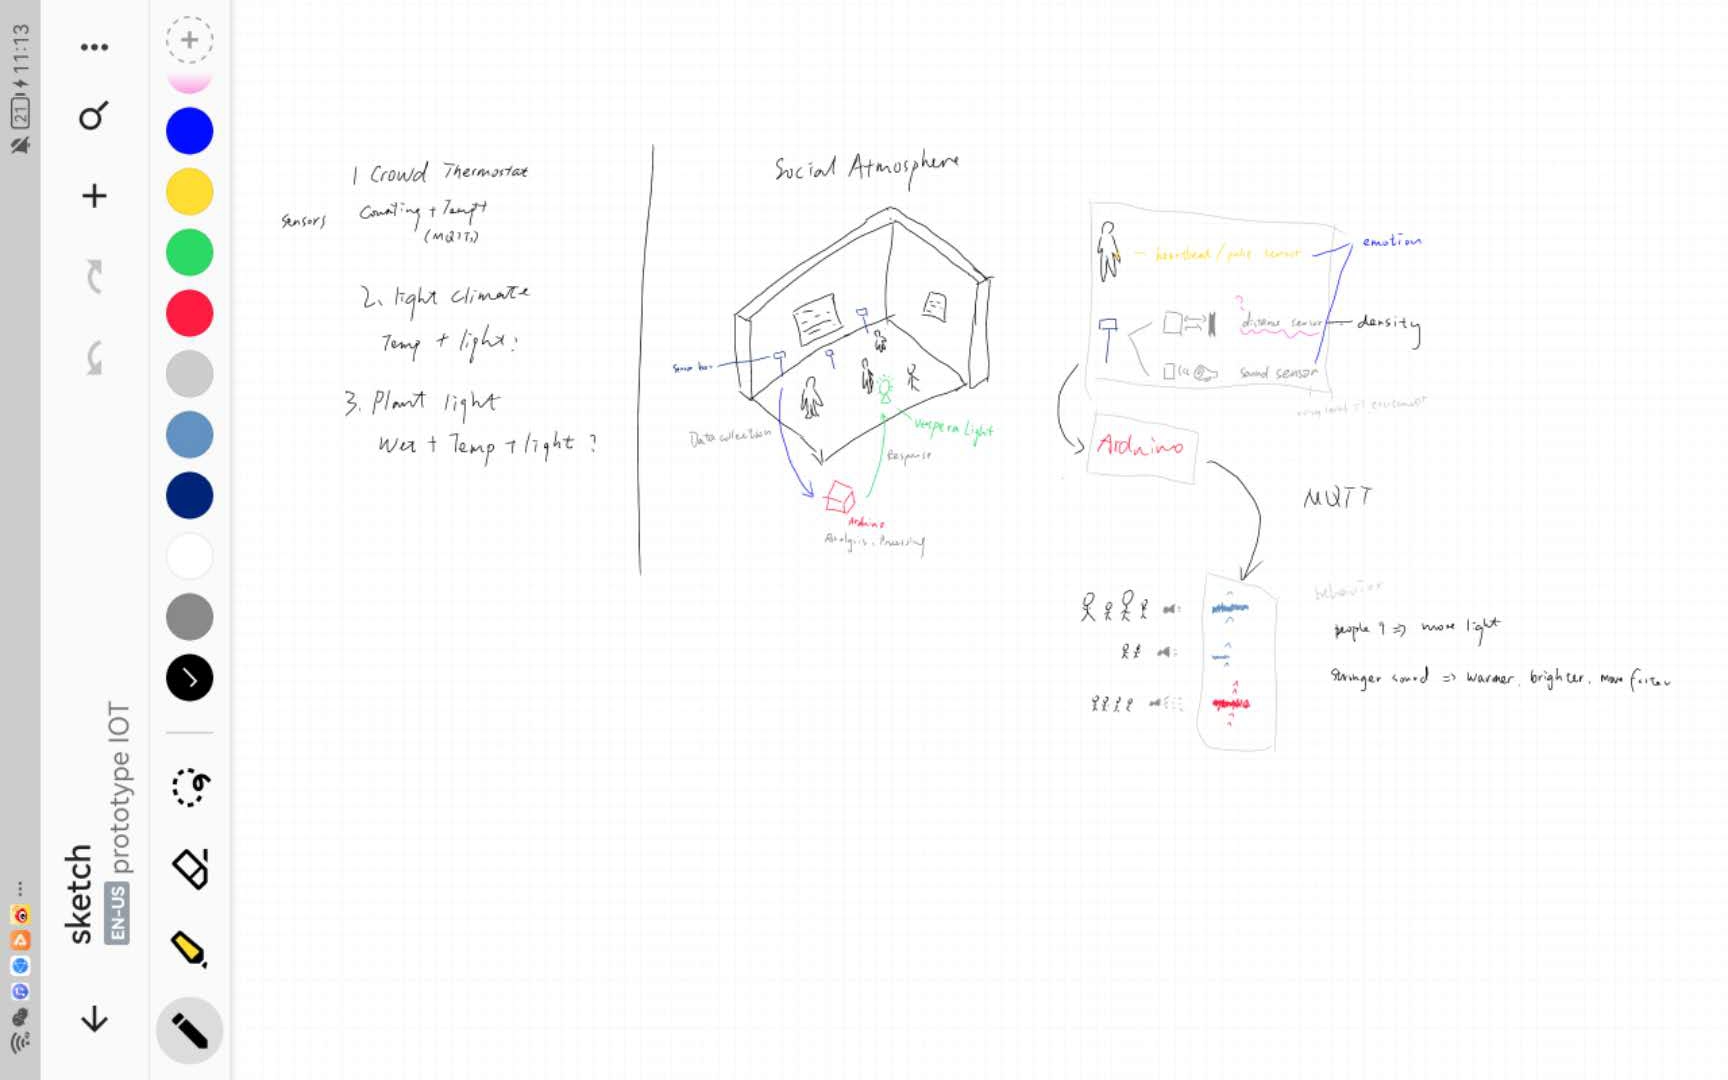 11:13
21
sketch
EN-US prototype IOT
1 Crowd Thermostat
sensors
Counting + Tempt
(MQTT)
2. light climate
Temp + light?
3. Plant light
Wet + Temp + light ?
Social Atmosphere
Sensor box
Data collection
Vespera Light
Response
Arduino
Analysis. Processing
heartbeat / pulse sensor
emotion
?
distance sensor
density
sound sensor
Arduino
MQTT
behavior
people ? => more light
Stronger sound => warmer. brighter. move faster